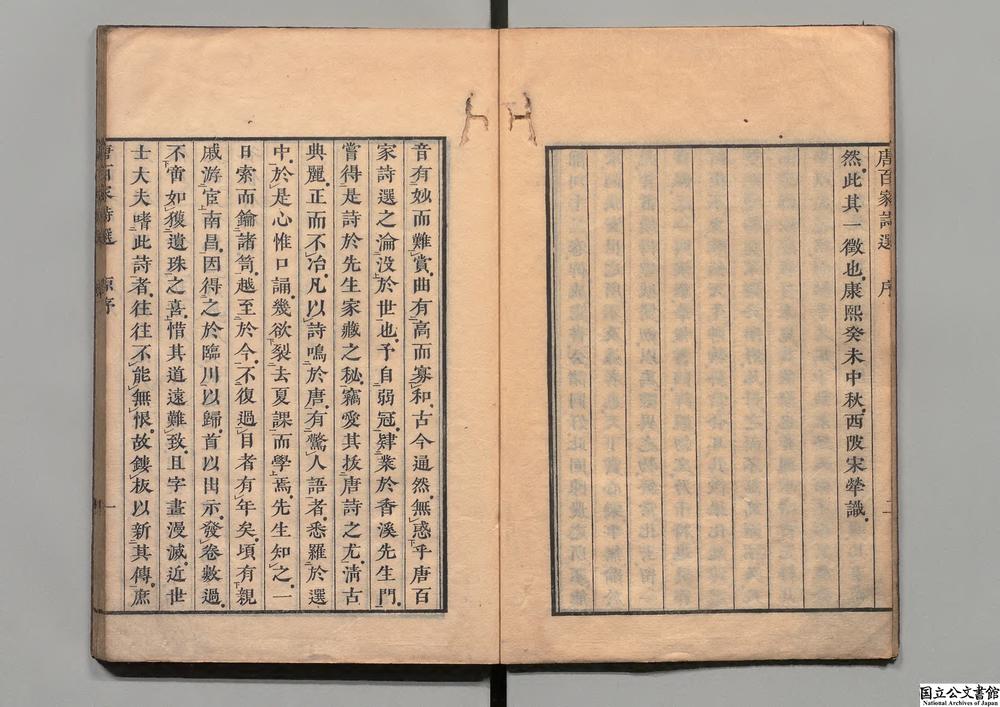 唐百家詩選 序 二
然此其一徵也康熙癸未中秋西陂宋犖識
音有妙而難賞曲有高而寡和古今通然無惑乎唐百
家詩選之淪没於世也予自弱冠肄業於香溪先生門
嘗得是詩於先生家藏之秘竊愛其拔唐詩之尤清古
典麗正而不冶凡以詩鳴於唐有驚人語者悉羅於選
中於是心惟口誦幾欲裂去夏課而學焉先生知之一
日索而鑰諸笥越至於今不復過目者有年矣頃有親
戚游宦南昌因得之於臨川以歸首以出示發卷數過
不啻如獲遺珠之喜惜其道遠難致且字畫漫滅近世
士大夫嗜此詩者往往不能無恨故鏤板以新其傳庶
唐百家詩選 序 一
国立公文書館
National Archives of Japan